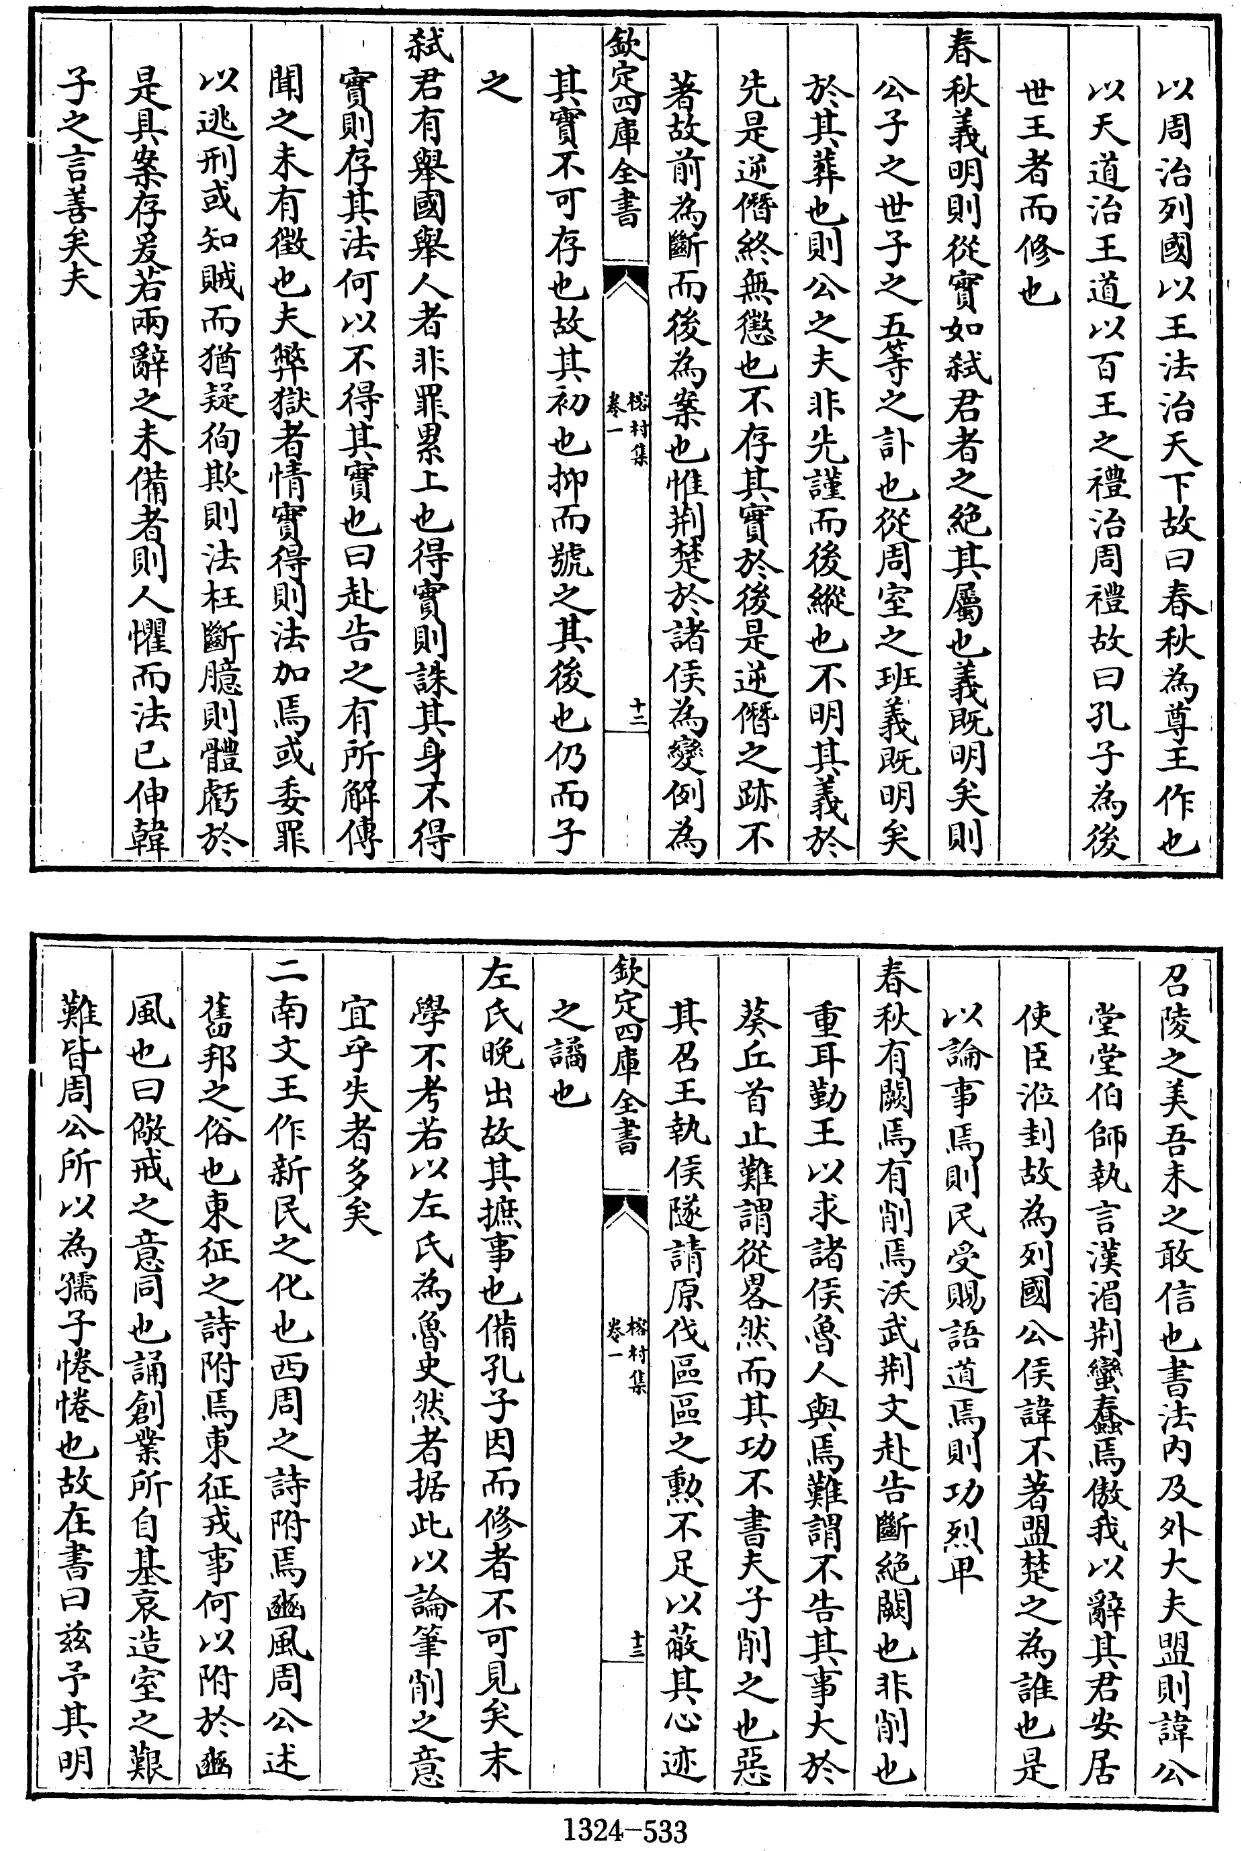 以周治列國以王法治天下故曰春秋為尊王作也
以天道治王道以百王之禮治周禮故曰孔子為後
世王者而修也
春秋義明則從實如弑君者之絕其屬也義既明矣則
公子之世子之五等之訃也從周室之班義既明矣
於其葬也則公之夫非先謹而後縱也不明其義於
先是逆僭終無懲也不存其實於後是逆僭之跡不
著故前為斷而後為案也惟荆楚於諸侯為變例為
欽定四庫全書
榕村集
卷一
十二
其實不可存也故其初也抑而號之其後也仍而子
之
弑君有舉國舉人者非罪累上也得實則誅其身不得
實則存其法何以不得其實也曰赴告之有所解傳
聞之未有徵也夫弊獄者情實得則法加焉或委罪
以逃刑或知賊而猶疑徇欺則法枉斷臆則體虧於
是具案存爰若兩辭之未備者則人懼而法已伸韓
子之言善矣夫
召陵之美吾未之敢信也書法內及外大夫盟則諱公
堂堂伯師執言漢湄荆蠻蠢焉傲我以辭其君安居
使臣涖封故為列國公侯諱不著盟楚之為誰也是
以論事焉則民受賜語道焉則功烈卑
春秋有闕焉有削焉沃武荆文赴告斷絕闕也非削也
重耳勤王以求諸侯魯人與焉難謂不告其事大於
葵丘首止難謂從畧然而其功不書夫子削之也惡
其召王執侯隧請原伐區區之勲不足以蔽其心迹
欽定四庫全書
榕村集
卷一
十三
之譎也
左氏晚出故其摭事也備孔子因而修者不可見矣末
學不考若以左氏為魯史然者据此以論筆削之意
宜乎失者多矣
二南文王作新民之化也西周之詩附焉豳風周公述
舊邦之俗也東征之詩附焉東征戎事何以附於豳
風也曰儆戒之意同也誦創業所自基哀造室之艱
難皆周公所以為孺子惓惓也故在書曰兹予其明
1324-533